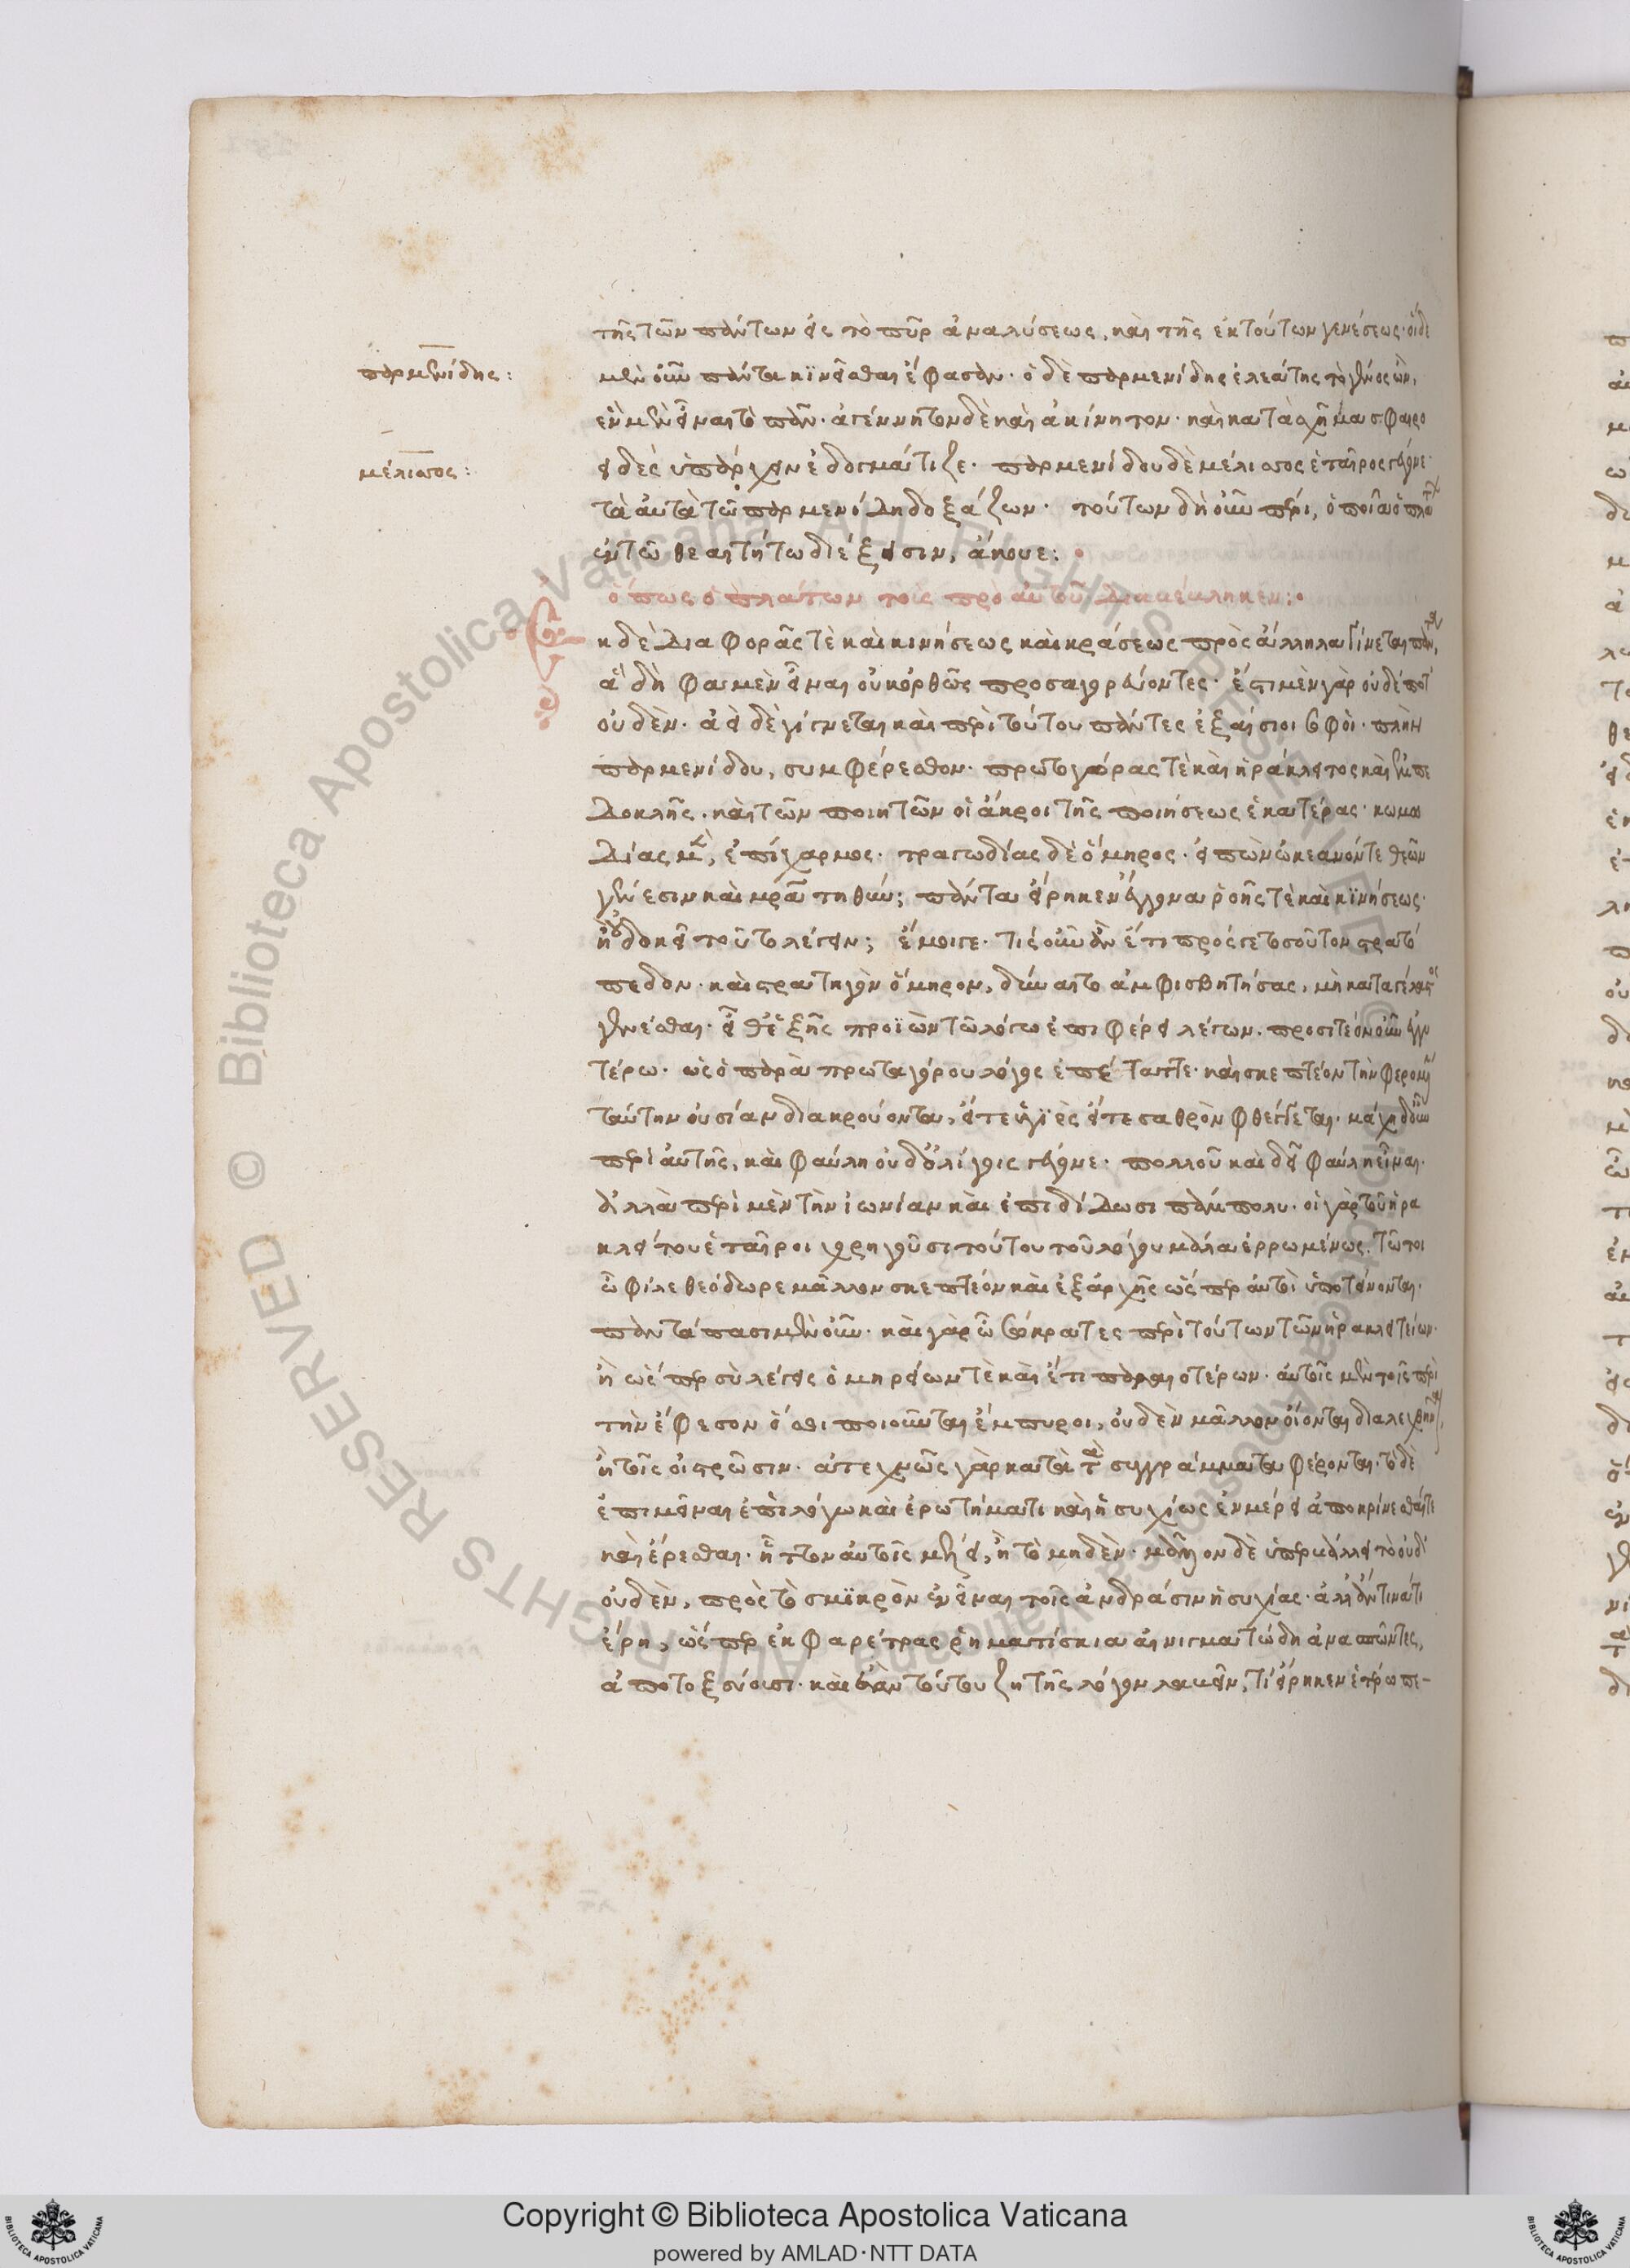 παρμενίδης:
μέλισσος:
τῆς τῶν πάντων εἰς τὸ πῦρ ἀναλύσεως, καὶ τῆς ἐκ τούτων γενέσεως· οἵδε
μὲν οὖν πάντα κϊνεῖσθαι ἔφασαν· ὁ δὲ παρμενίδης ἐλεάτης τὸ γένος ὢν,
ἓν μὲν εἶναι τὸ πᾶν· ἀγέννητον δὲ καὶ ἀκίνητον· καὶ κατὰ σχῆμα σφαιρο
ειδὲς ὑπάρχειν ἐδογμάτιζε· παρμενίδου δὲ μέλισσος ἑταῖρος γέγονε·
τὰ αὐτὰ τῶ παρμενίδη δοξάζων· τούτων δὴ οὖν πέρι, ὁποῖα ὁ πλάτ
ἐν τῶ θεαιτήτω διέξεισιν, ἄκουε:
ὅπως ὁ πλάτων τοῖς πρὸ αὐτοῦ διαβέβληκεν:
Ἐκ δὲ διαφορᾶς τὲ καὶ κινήσεως καὶ κράσεως πρὸς ἄλληλα γίνεται πάντα,
ἃ δή φαμὲν εἶναι οὐκ ὀρθῶς προσαγορεύοντες· ἔστι μὲν γὰρ οὐδέποτ'
οὐδὲν· ἀεὶ δὲ γίγνεται καὶ περὶ τούτου πάντες ἐξαίσιοι σοφοὶ· πλὴν
παρμενίδου, συμφέρεσθον· πρωταγόρας τὲ καὶ ἡράκλειτος καὶ ἐμπε
δοκλῆς· καὶ τῶν ποιητῶν οἱ ἄκροι τῆς ποιήσεως ἑκατέρας· κωμω
δίας μὲν, ἐπίχαρμος· τραγωδίας δὲ ὅμηρος· εἰπὼν ὠκεανόν τε θεῶν
γένεσιν καὶ μρα τηθύν; πάντα εἴρηκεν ἔκγονα ῥοῆς τὲ καὶ κϊνήσεως·
ἢ οὐ δοκεῖ τοῦτο λέγειν; ἔμοιγε· τίς οὖν ἂν ἔτι πρός γε τοσοῦτον στρατό
πεδον· καὶ στρατηγὸν ὅμηρον, δύναιτο ἀμφισβητήσας, μὴ καταγέλαστος
γενέσθαι· εἶθ' ἑξῆς προϊὼν τῶ λόγω ἐπιφέρει λέγων· προσιτέον οὖν ἐγγυ
τέρω· ὡς ὁ παρὰ πρωταγόρου λόγος ἐπέταττε· καὶ σκεπτέον τὴν φερομένην
ταύτην οὐσίαν διακρούοντα, εἴτε ὑγϊὲς εἴτε σαθρὸν φθέγγεται· μάχη δ' οὖν
περὶ αὐτῆς, καὶ φαύλη οὐδ' ὀλίγοις γέγονε· πολλοῦ καὶ δεῖ φαύλη εἶναι·
ἀλλὰ περὶ μὲν τὴν ἰωνίαν καὶ ἐπιδίδωσι πάμπολυ· οἱ γὰρ τοῦ ἡρα
κλείτου ἑταῖροι χορηγοῦσι τούτου τοῦ λόγου μάλα ἐρρωμένως· τῶ τοι
ὦ φίλε θεόδωρε μᾶλλον σκεπτέον καὶ ἐξάρχῆς ὥς περ αὐτοὶ ὑποτείνονται·
πάντάπασι μὲν οὖν· καὶ γὰρ ὦ σώκρατες περὶ τούτων τῶν ἡρακλειτείων·
ἢ ὥς περ σὺ λέγεις ὁμηρείων τὲ καὶ ἔτι παλαιοτέρων· αὐτοῖς μὲν τοῖς περὶ
τὴν ἔφεσον ὅσοι ποιοῦνται ἔμπυροι, οὐδὲν μᾶλλον οἷόνται διαλεχθῆναι,
ἢ τοῖς οἰστρῶσιν· ἀτεχνῶς γὰρ κατὰ τὰ συγγράμματα φέρονται· τὸ δὲ
ἐπιμεῖναι ἐπὶ λόγω καὶ ἐρωτήματι καὶ ἡσυχίως ἐν μέρει ἀποκρίνεσθαί τε
καὶ ἔρεσθαι· ἧττον αὐτοῖς μέτει, ἢ τὸ μηδὲν· μᾶλλον δὲ ὑπερβάλλει τὸ οὐδ'
οὐδὲν, πρὸς τὸ σμϊκρὸν ἐνεῖναι τοῖς ἀνδράσιν ἡσυχίας· ἀλλ' ἄν τινά τι
ἔρη, ὥς περ ἐκ φαρέτρας ῥηματίσκια αἰνιγματώδη ἀνασπῶντες,
ἀποτοξεύουσι· καὶ ἐὰν τούτου ζητῆς λόγον λαβεῖν, τί εἴρηκεν ἑτέρω πε-